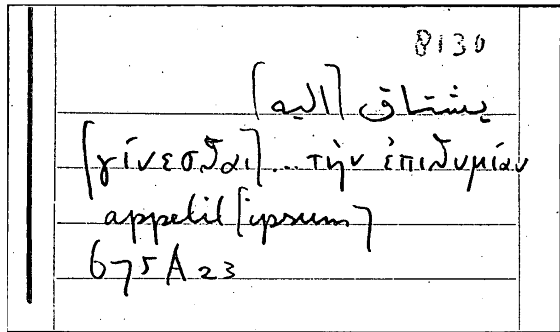 8130
يشتاق [اليه]
[γίνεσθαι]... τὴν ἐπιθυμίαν
appetit [ipsum]
675A23